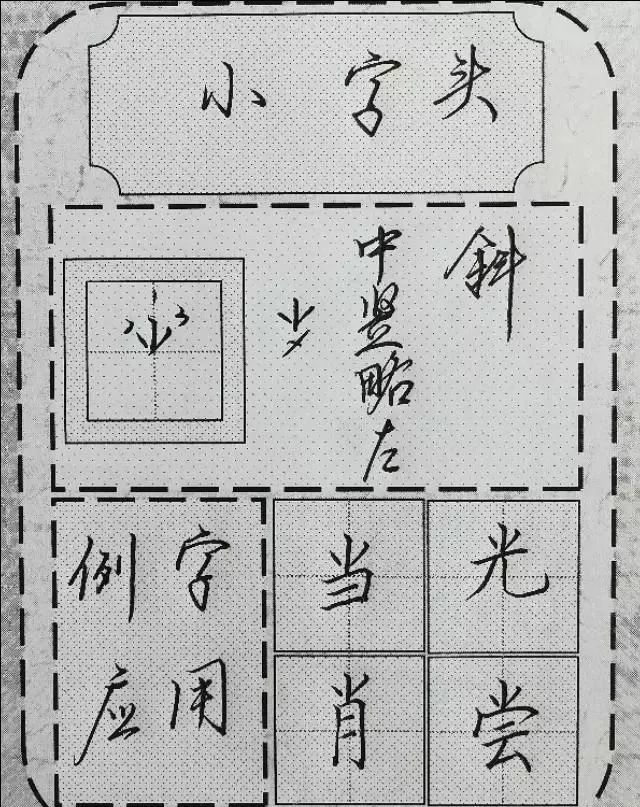 小字头
⺌
中竖略左
斜
例字
应用
当光
肖尝